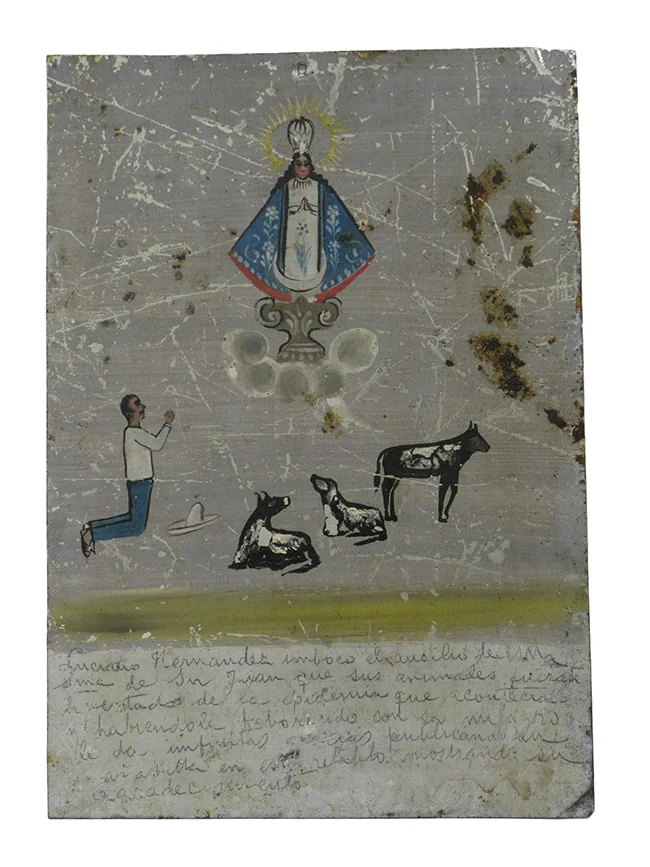 Luciano Hernandez imboco el ausilio de M Ma
Sma de Sn Juan que sus animales fueran
livertados de la epidemia que acontecia
y habiendole faborecido con su milagro
le da infinitas gracias publicando su
en este retablo mostrando su
agradecimiento